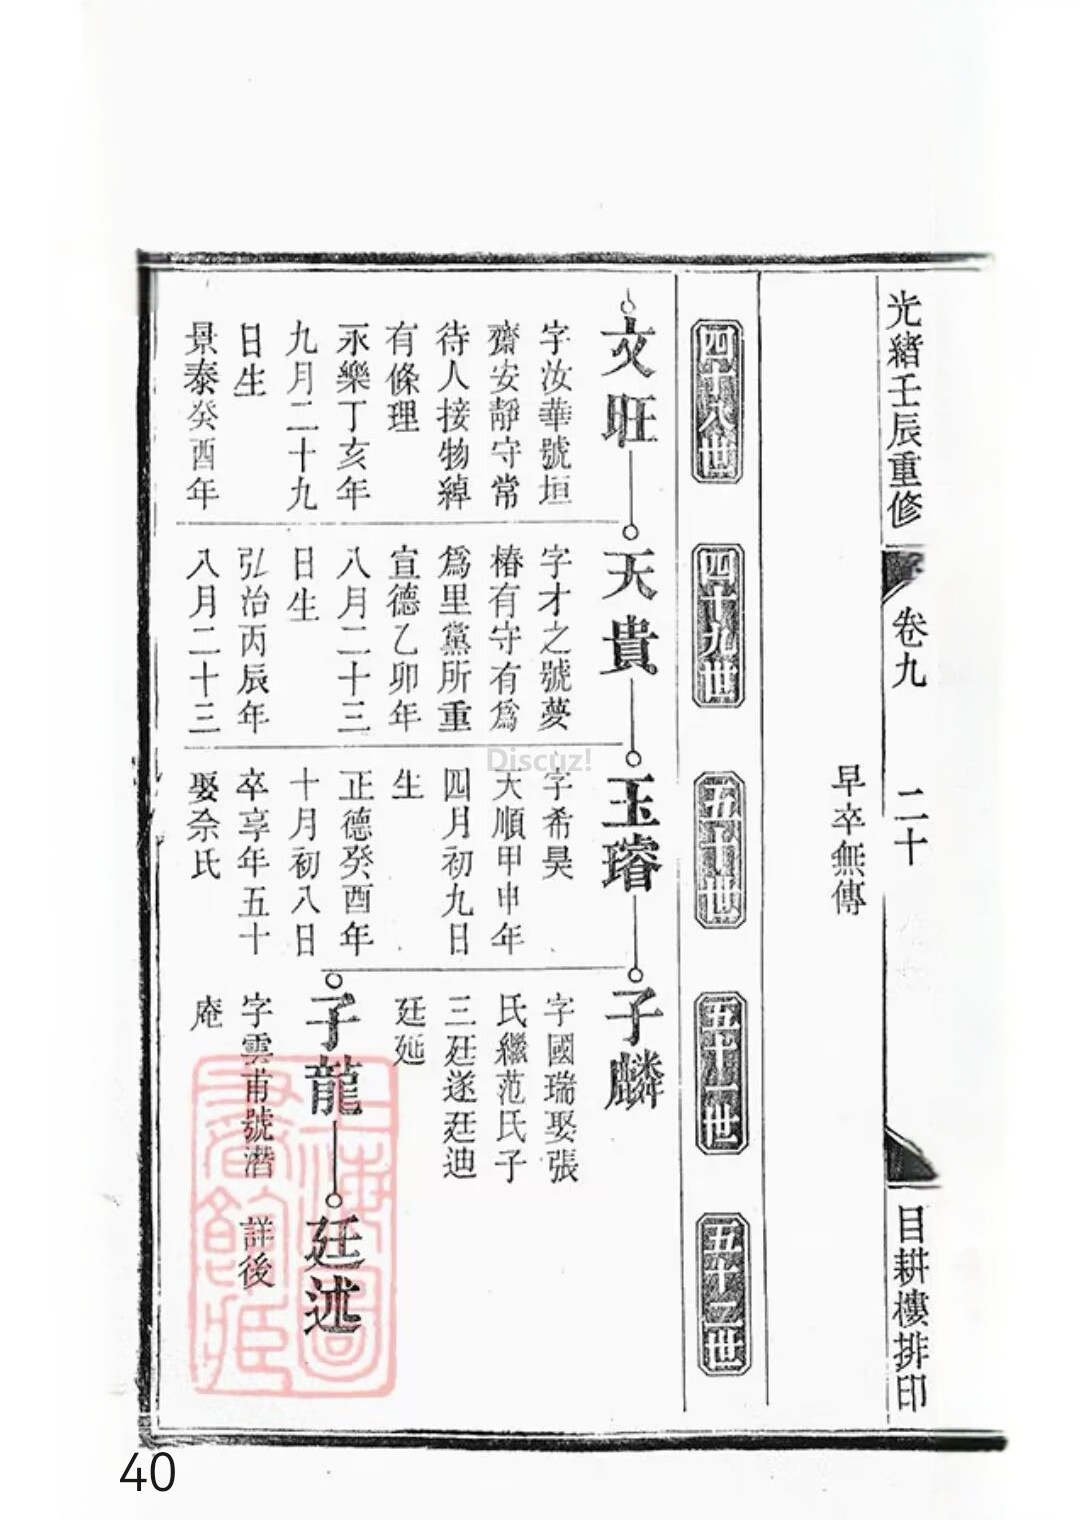 光緒壬辰重修
卷九
二十
目耕樓排印
早卒無傳
四十八世
四十九世
五十世
五十一世
五十二世
文旺
字汝華號垣
齋安靜守常
待人接物綽
有條理
永樂丁亥年
九月二十九
日生
景泰癸酉年
天貴
字才之號夢
椿有守有爲
爲里黨所重
宣德乙卯年
八月二十三
日生
弘治丙辰年
八月二十三
玉璿
字希昊
天順甲申年
四月初九日
生
正德癸酉年
十月初八日
卒享年五十
娶佘氏
子麟
字國瑞娶張
氏繼范氏子
三廷遂廷迪
廷延
子龍
字雲甫號潛
庵
廷述
詳後
上海圖書館藏
Discuz!
40